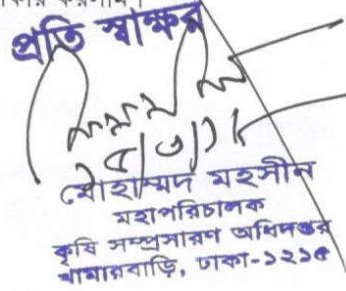 করলাম।
প্রতি স্বাক্ষর
মোহাম্মদ মহসীন
মহাপরিচালক
কৃষি সম্প্রসারণ অধিদপ্তর
খামারবাড়ি, ঢাকা-১২১৫